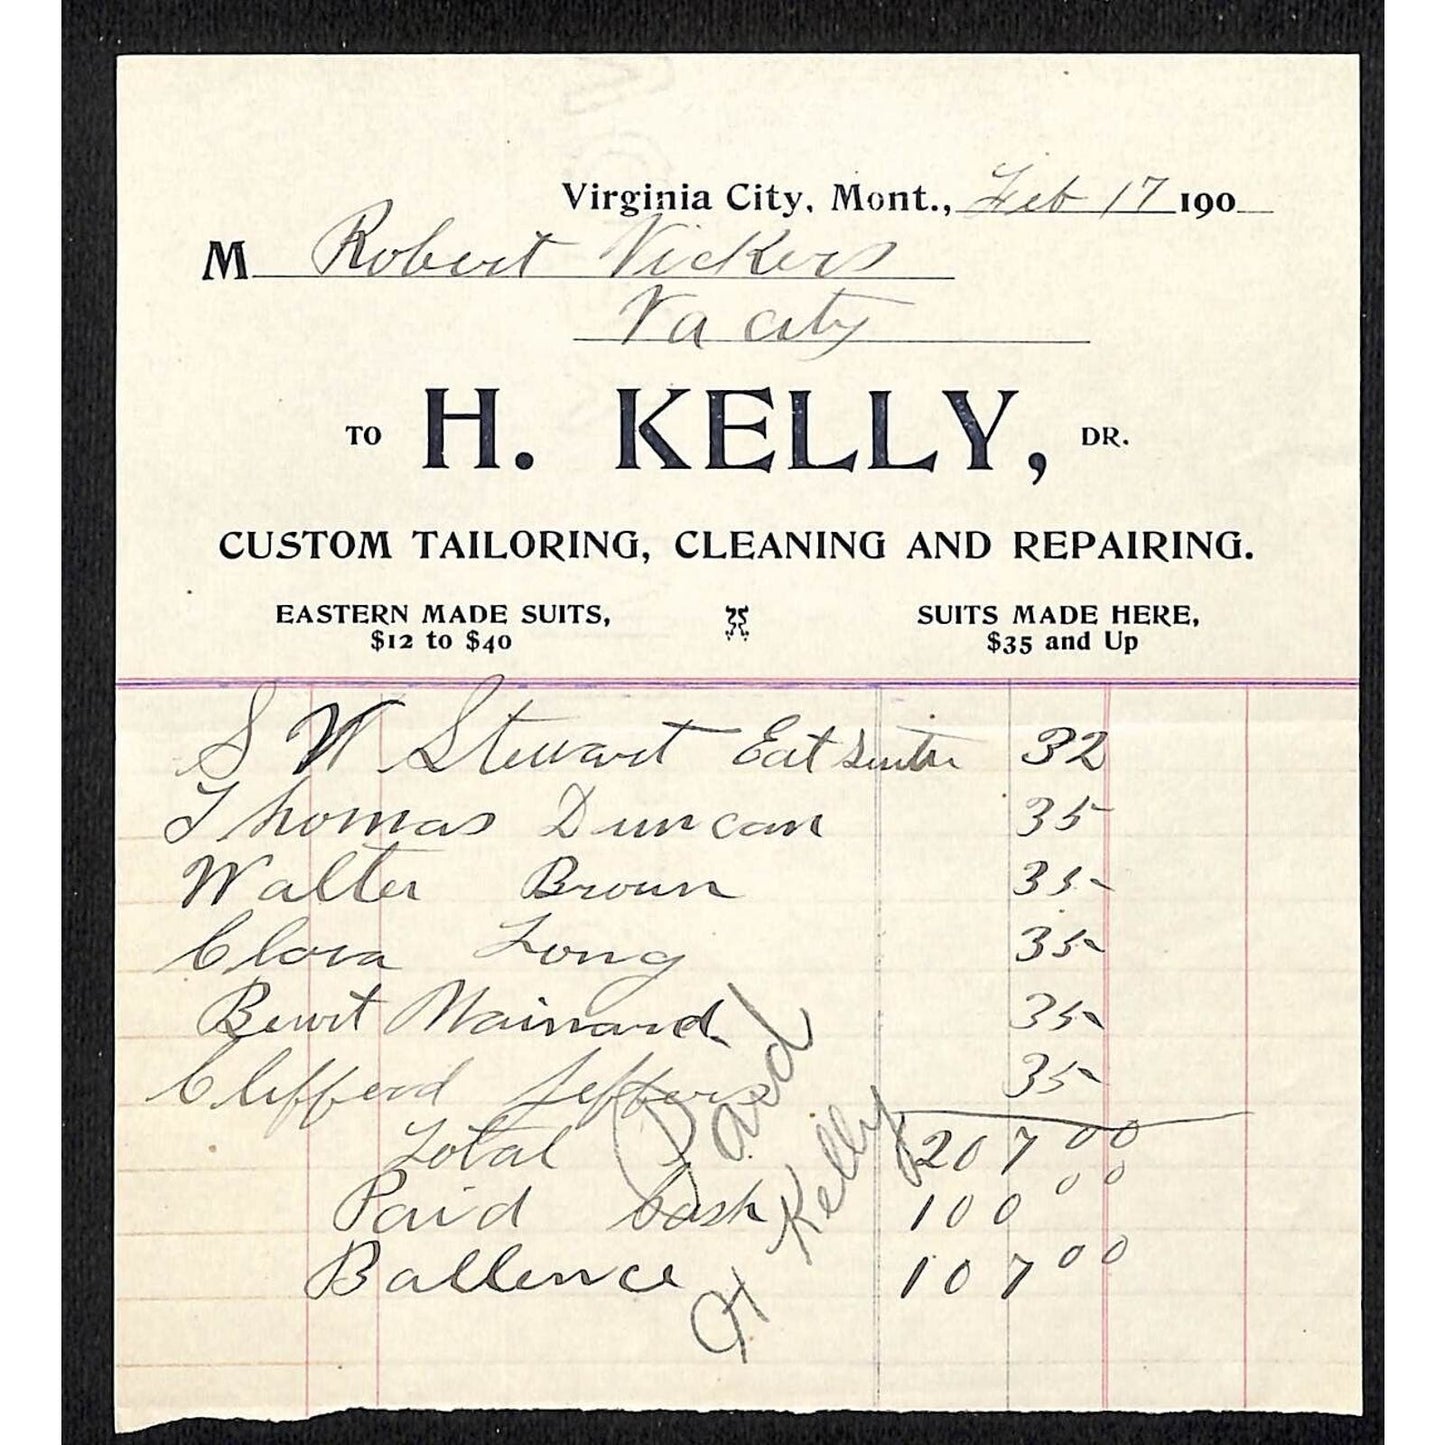 Virginia City, Mont., Feb 17 190
M Robert Vickers
Va City
TO H. KELLY, DR.
CUSTOM TAILORING, CLEANING AND REPAIRING.
EASTERN MADE SUITS, SUITS MADE HERE,
$12 to $40 $35 and Up
S W Stewart 32
Thomas Duncan 35
Walter Broun 35
Clora Long 35
Bewrt Mainard 35
Clifferd Jeffers 35
Total 207 00
Paid Cash 100 00
Ballence 107 00
Paid
H Kelly